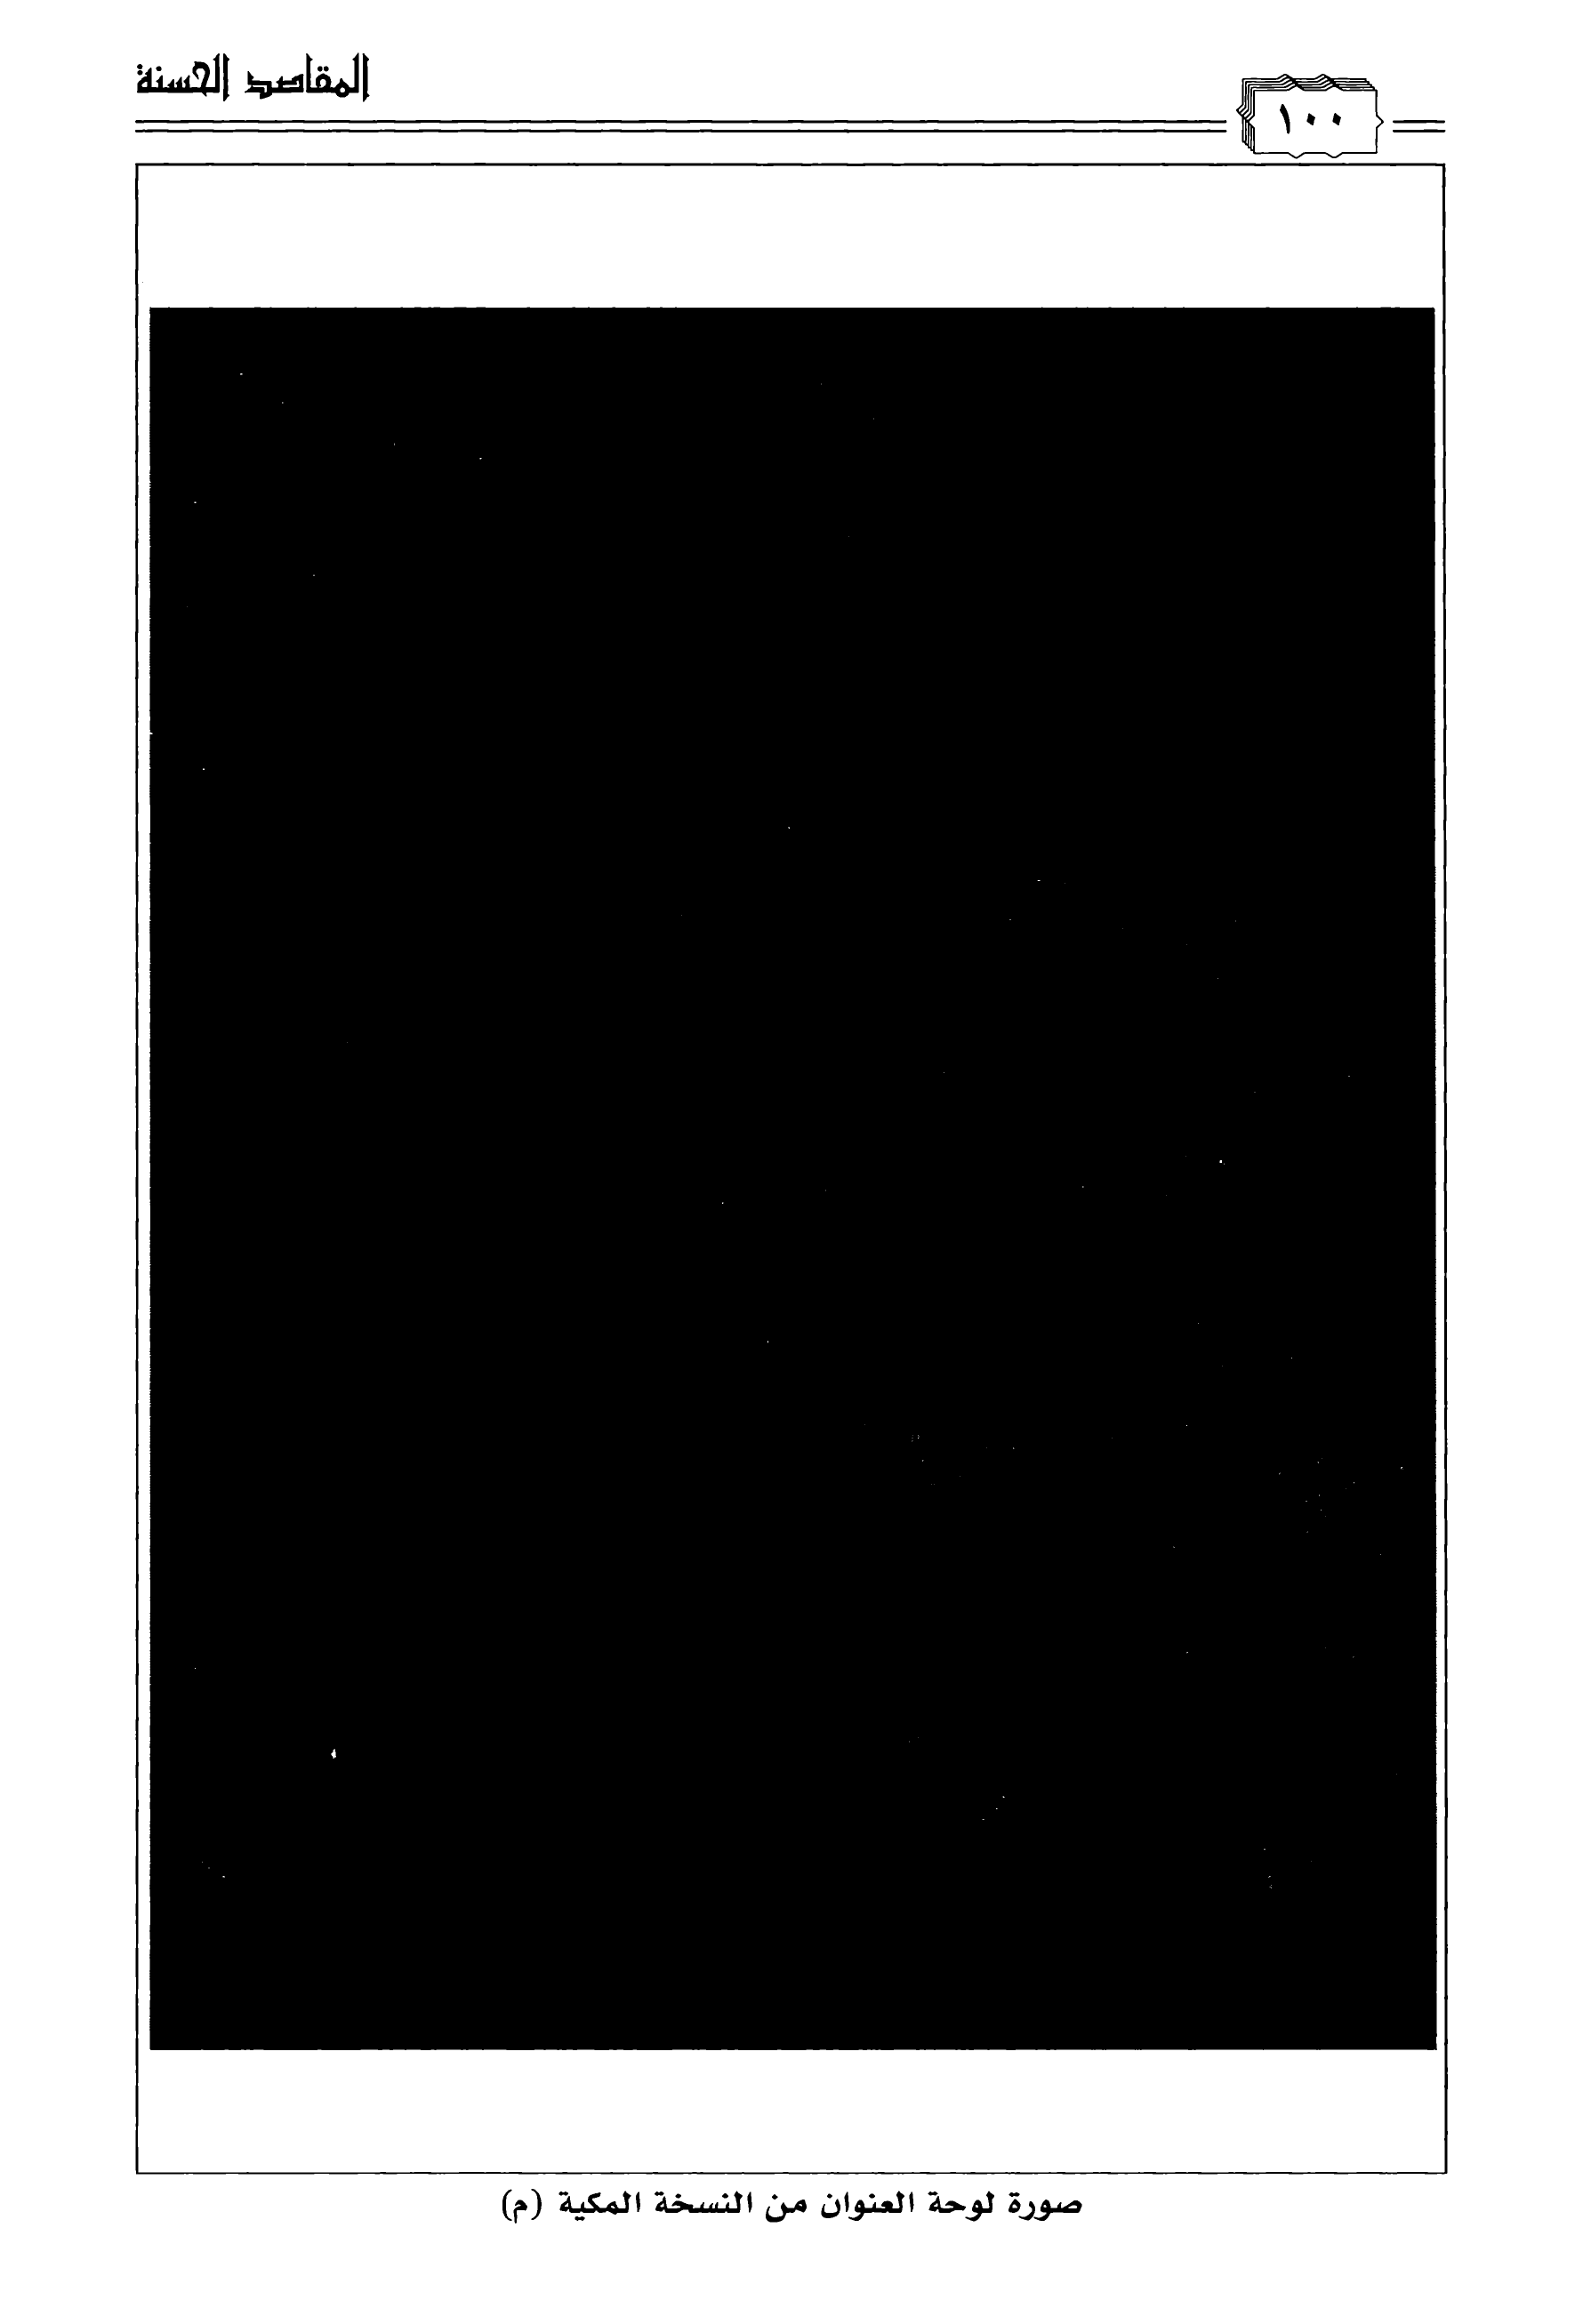 المقاصد الحسنة
١٠٠
صورة لوحة العنوان من النسخة المكية (م)